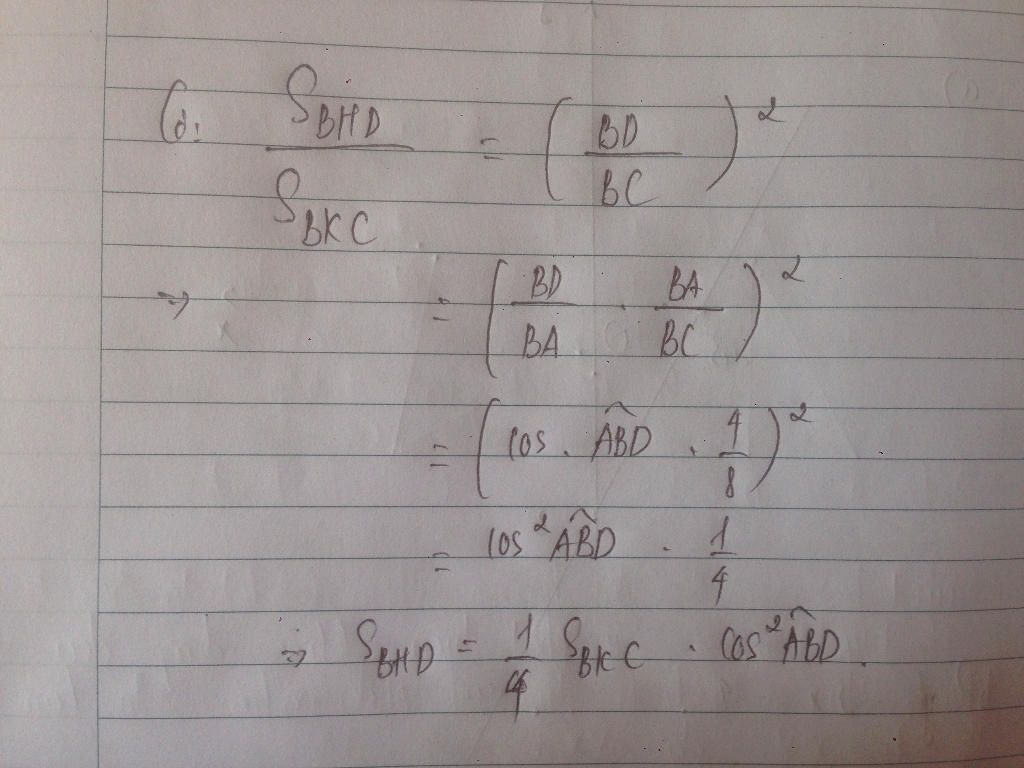 Có: S_BHD / S_BKC = ( BD / BC )²
⇒ = ( BD / BA . BA / BC )²
= ( cos . ABD̂ . 4 / 8 )²
= cos² ABD̂ . 1 / 4
⇒ S_BHD = 1 / 4 S_BKC . cos² ABD̂.